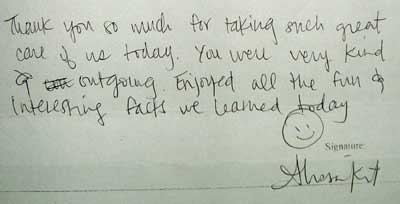 Thank you so much for taking such great
care of us today. You were very kind
& outgoing. Enjoyed all the fun &
Interesting facts we learned today
Signature: